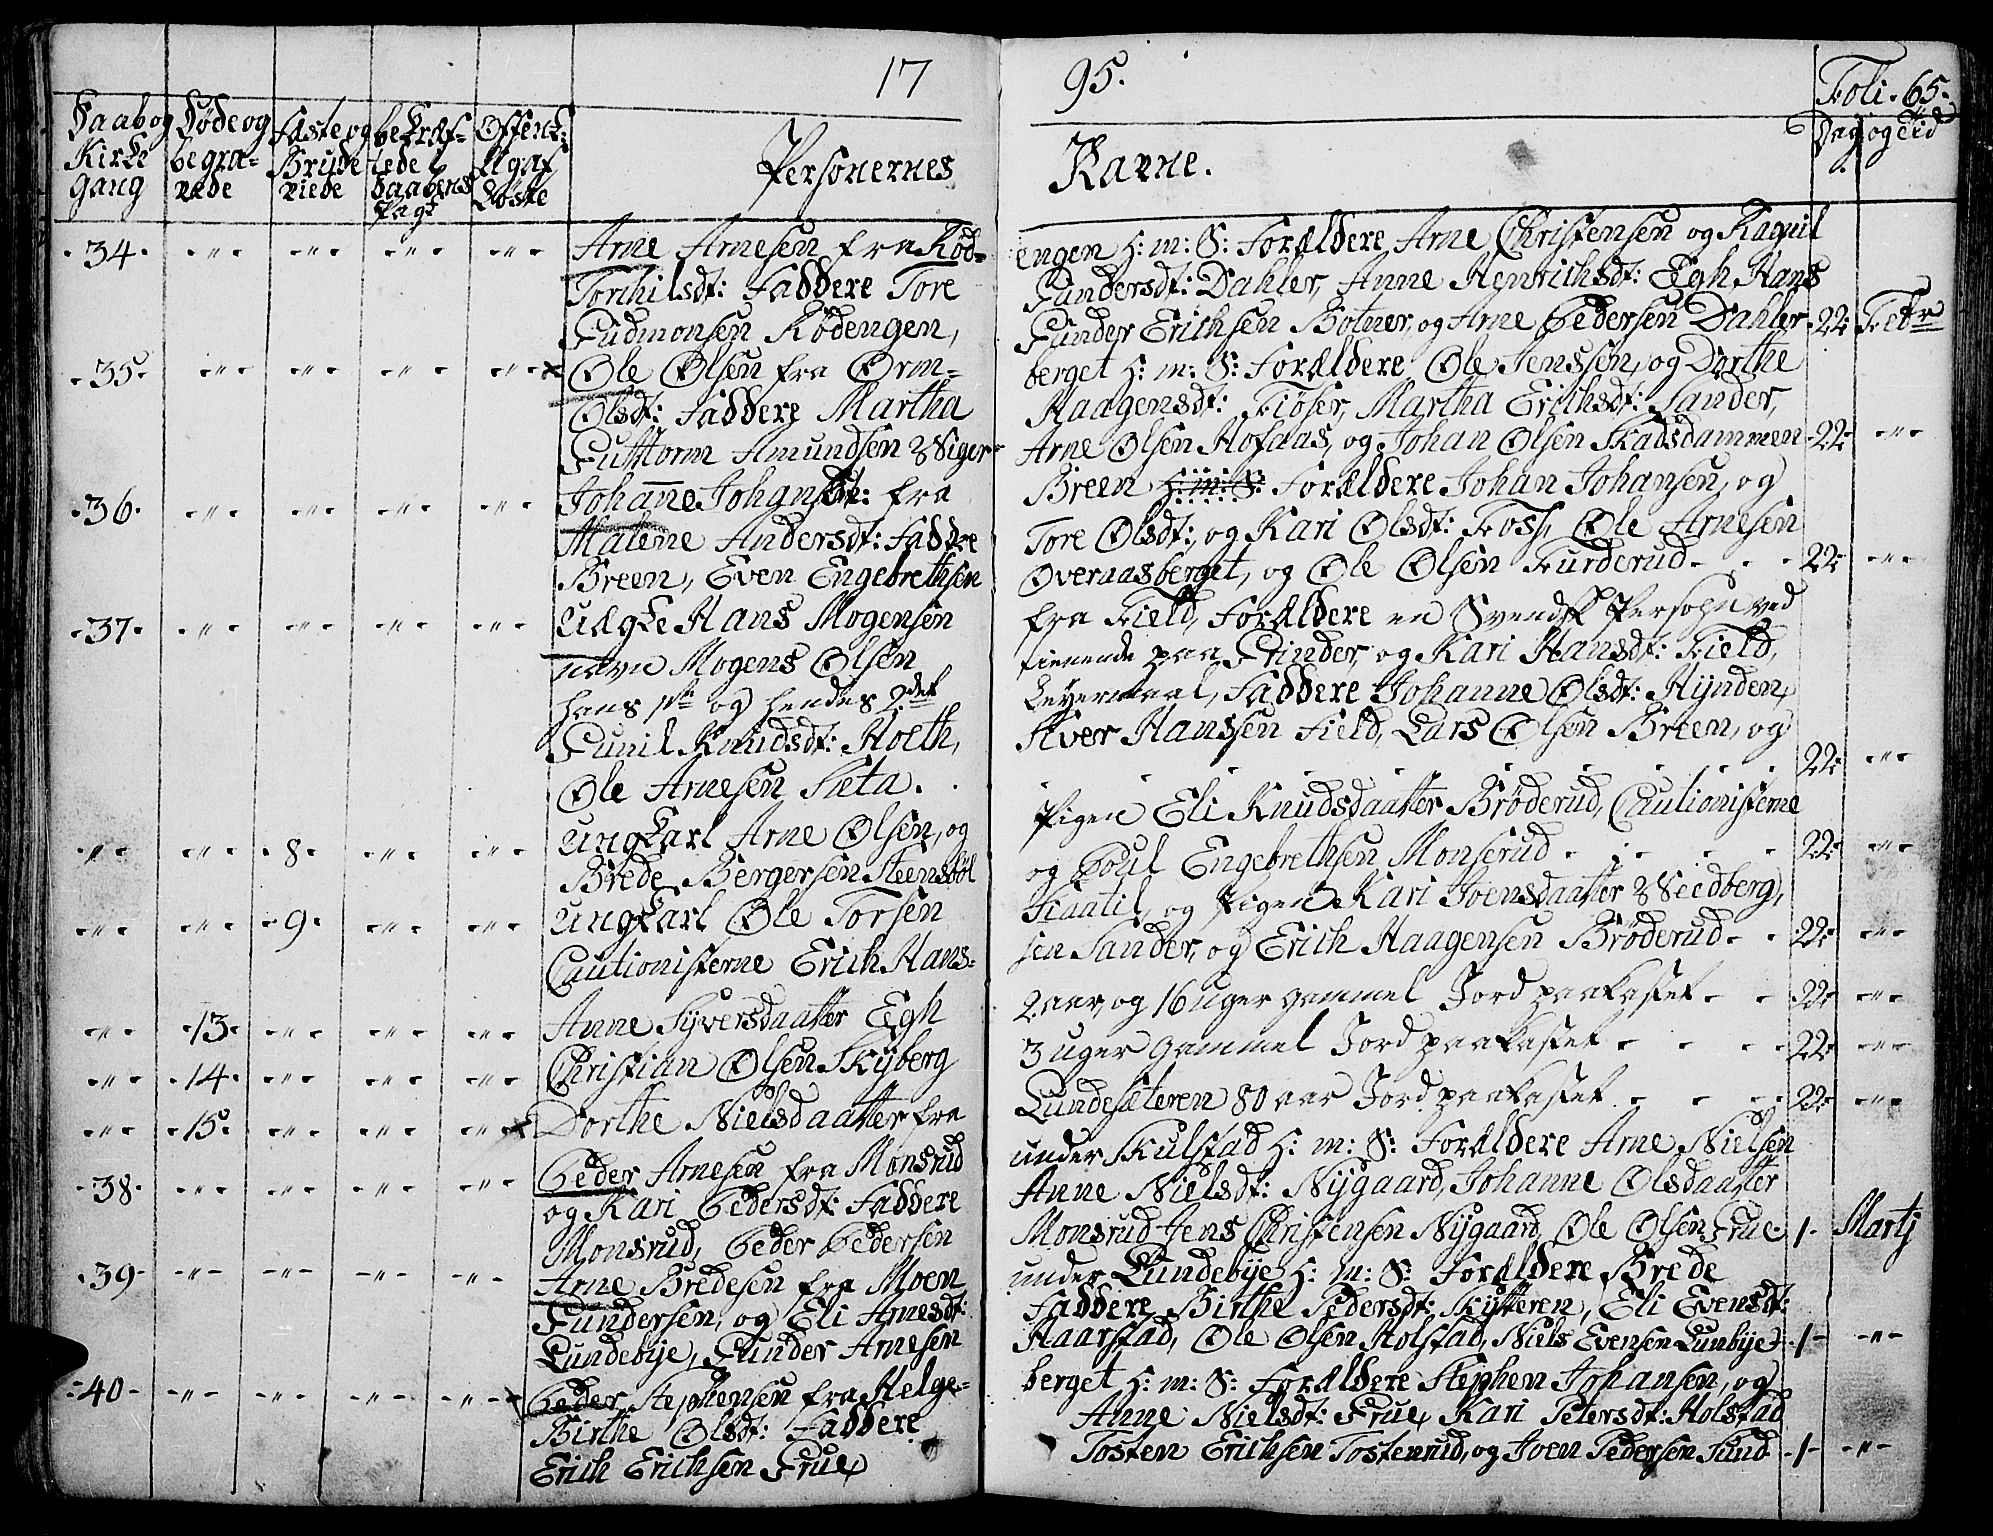 17 95. Foli. 65.
Daab og Kirke gang
Døde og begra= vede
Fæste og Brude viede
bekræf= tede Daabens Pagt
Offentl: Skrifte
Personernes Navne.
Dag og Tid
34. Arne Arnesen fra Röd= engen H: m: S: Forældere Arne Christensen og Ragnil
Torchilsdt: Faddere Tore Gundersdt: Dahler, Anne Henrichsdt: Egh, Hans
Gudmonsen Rödengen, Gunder Erichsen Botner, og Arne Pedersen Dahler 22: Febr
35. Ole Olsen fra Orm= berget H: m: S: Forældere Ole Jenssen, og Dorthe
Olsdt: Faddere Martha Haagensdt: Fiöser, Martha Erichsdt: Sander,
Guttorm Amundsen Arne Olsen Hofaas, og Johan Olsen Skadsdammen 22:
36. Johanne Johansdt: fra Breen H: m: S: Forældere Johan Johansen, og
Malene Andersdt: Faddre Tore Olsdt:, og Kari Olsdt: Foss, Ole Arnesen
Breen, Even Engebrethsen Overaasberget, og Ole Olsen Furderud 22:
37. Uægte Hans Mogensen fra Field, Forældere en Svensk Person ved
navn Mogens Olsen tienende paa Grinder, og Kari Hansdt: Field,
hans 1te og hendes 2det Leyermaal, Faddere Johanne Olsdt: Hynden,
Gunil Knudsdt: Hoeth, Siver Hanssen Field, Lars Olsen Breen, og
Ole Arnesen Sæta. 22:
8. Ungkarl Arne Olsen, og Pigen Eli Knudsdaatter Bröderud, Cautionisterne
Brede Bergersen Steensböl og Poul Engebrethsen Monserud 22:
9. Ungkarl Ole Torsen Skaatil, og Pigen Kari Joensdaatter
Cautionisterne Erich Hans= sen Sander, og Erich Haagensen Bröderud 22:
13. Anne Syversdaatter Egh 2 aar, og 16 uger gammel Jord paakastet 22:
14. Christian Olsen Skyberg 3 uger gammel Jord paakastet 22:
15. Dorthe Nielsdaatter fra Lundesæteren 80 aar Jord paakastet 22:
38. Peder Arnesen fra Monsrud under Skulstad H: m: S: Forældere Arne Nielsen
og Kari Pedersdt: Faddere Anne Nielsdt: Nygaard, Johanne Olsdaatter
Monsrud, Peder Pedersen Monsrud, Jens Christensen Nygaard, Ole Olsen Frue 1 Martj
39. Arne Bredesen fra Moen under Lundebye H: m: S: Forældere Brede
Gundersen, og Eli Arnesdt: Faddere Birthe Pedersdt: Skytteren, Eli Evensdt:
Lundebye, Gunder Arnesen Haarstad, Ole Olsen Holstad, Niels Evensen Lunbye 1
40 Peder Stephensen fra Helge= berget H: m: S: Forældere Stephen Johansen, og
Birthe Olsdt: Faddere Anne Nielsdt: Frue, Kari Petersdt: Holstad
Erich Erichsen Frue, Tosten Erichsen Tostenrud, og Joen Pedersen Sund 1